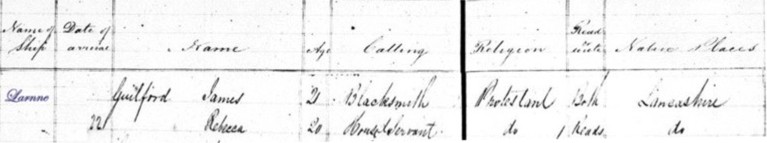 Name of Ship Date of arrival Name Age Calling Religion Read write Native Places
Larnne Guilford James 21 Blacksmith Protestant Both Lancashire
22 Rebecca 20 House Servant do 1 Reads do